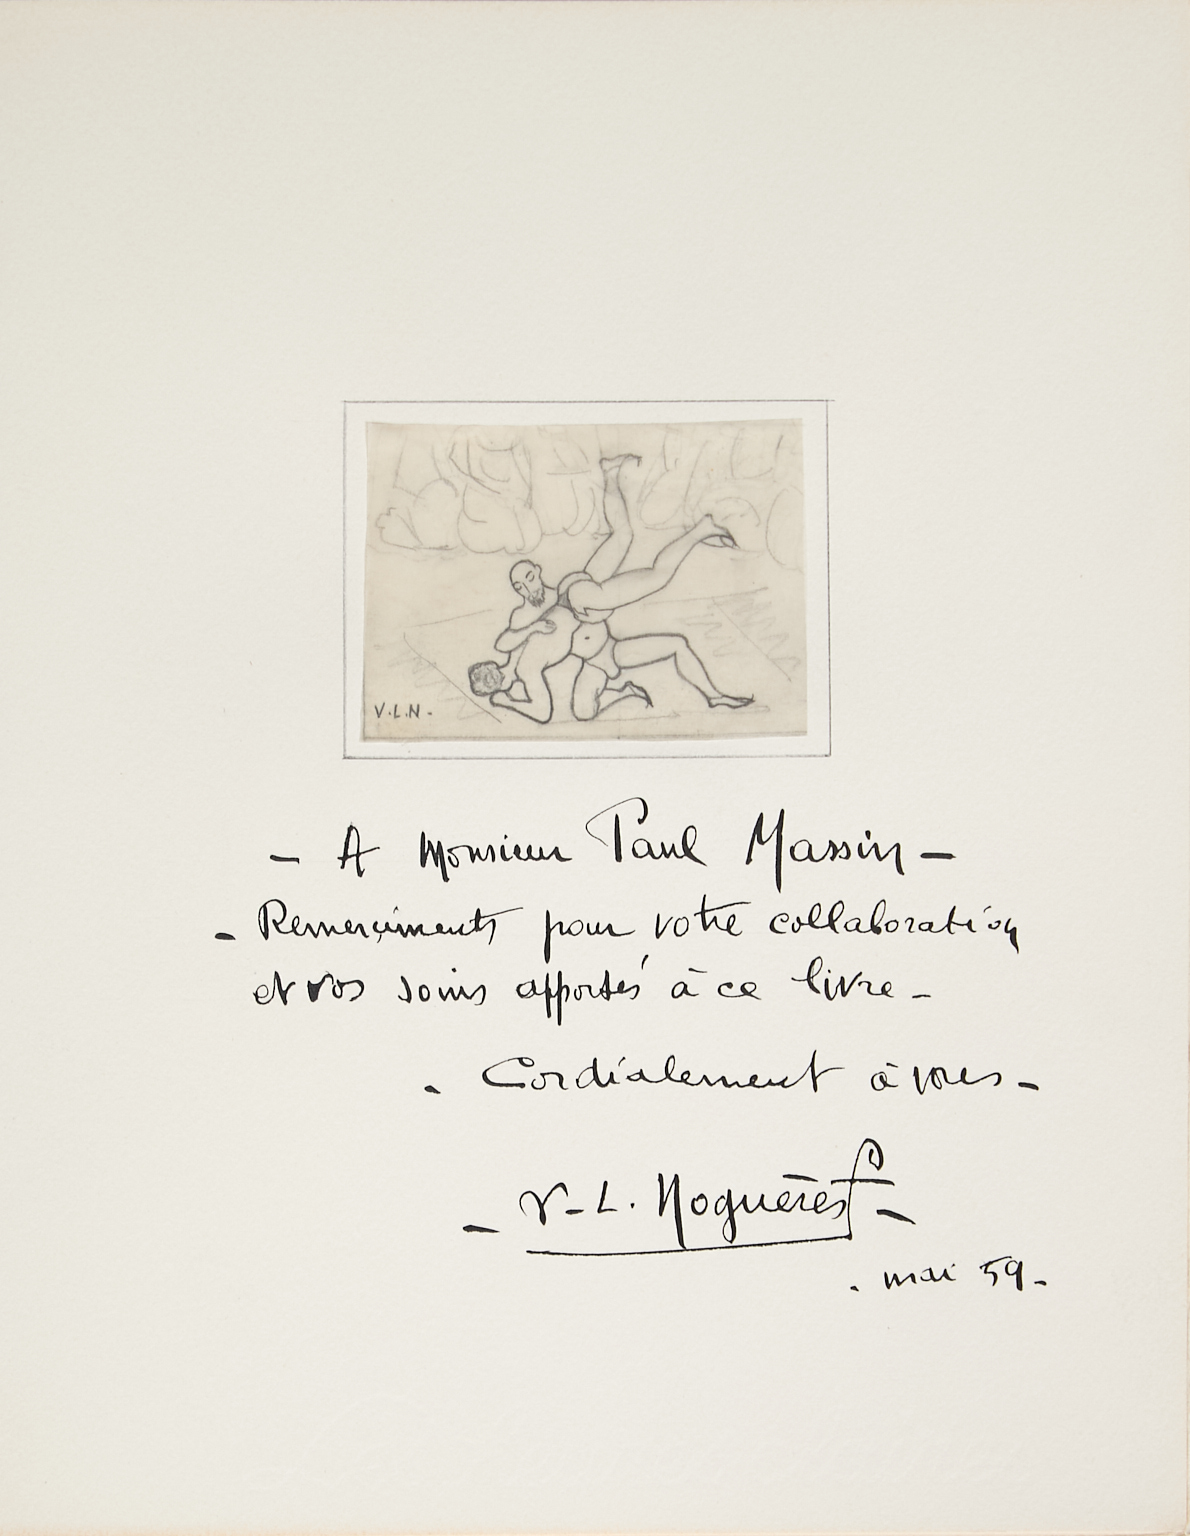 V.L.N.
- A Monsieur Paul Massin -
- Remerciments pour votre collaboration
et vos soins apportés à ce livre -
. Cordialement à vous -
- V-L. Noguères -
. mai 59 -